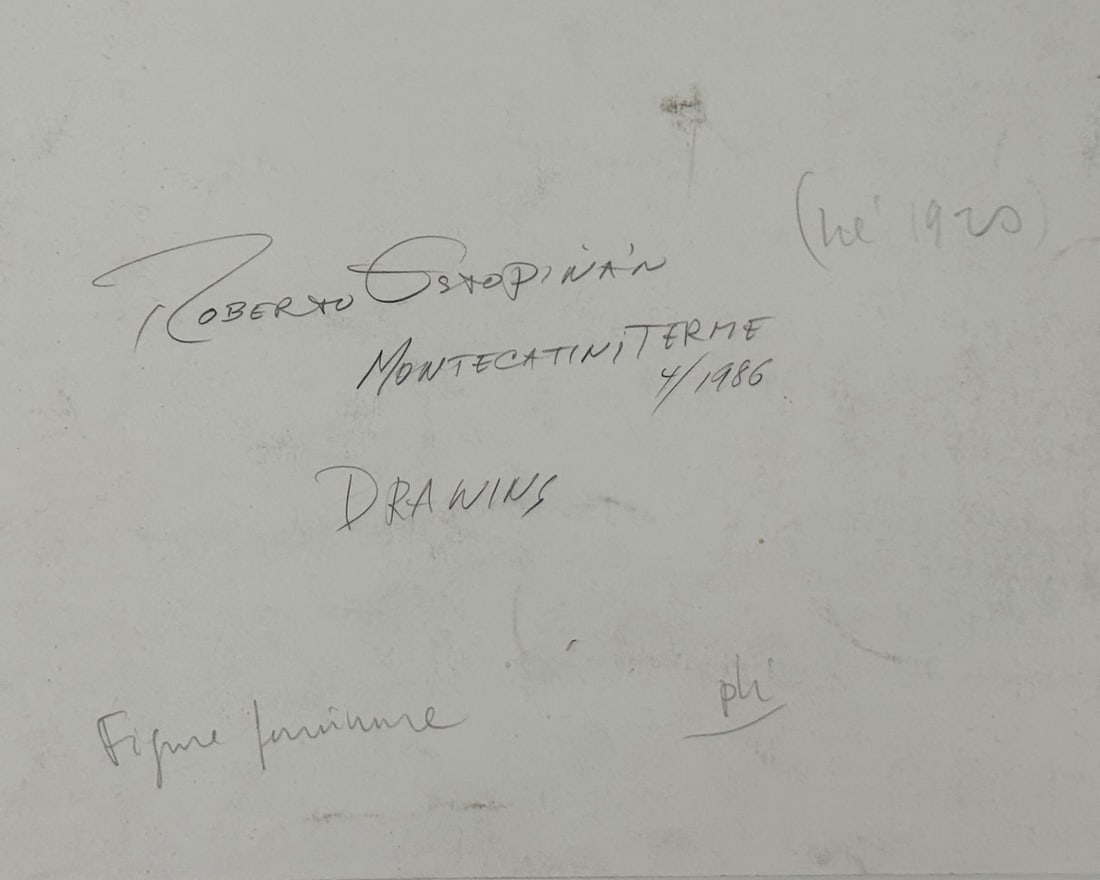 (né 1920)
ROBERTO ESTOPIÑÁN
MONTECATINI TERME
4/1986
DRAWING
Figure feminine